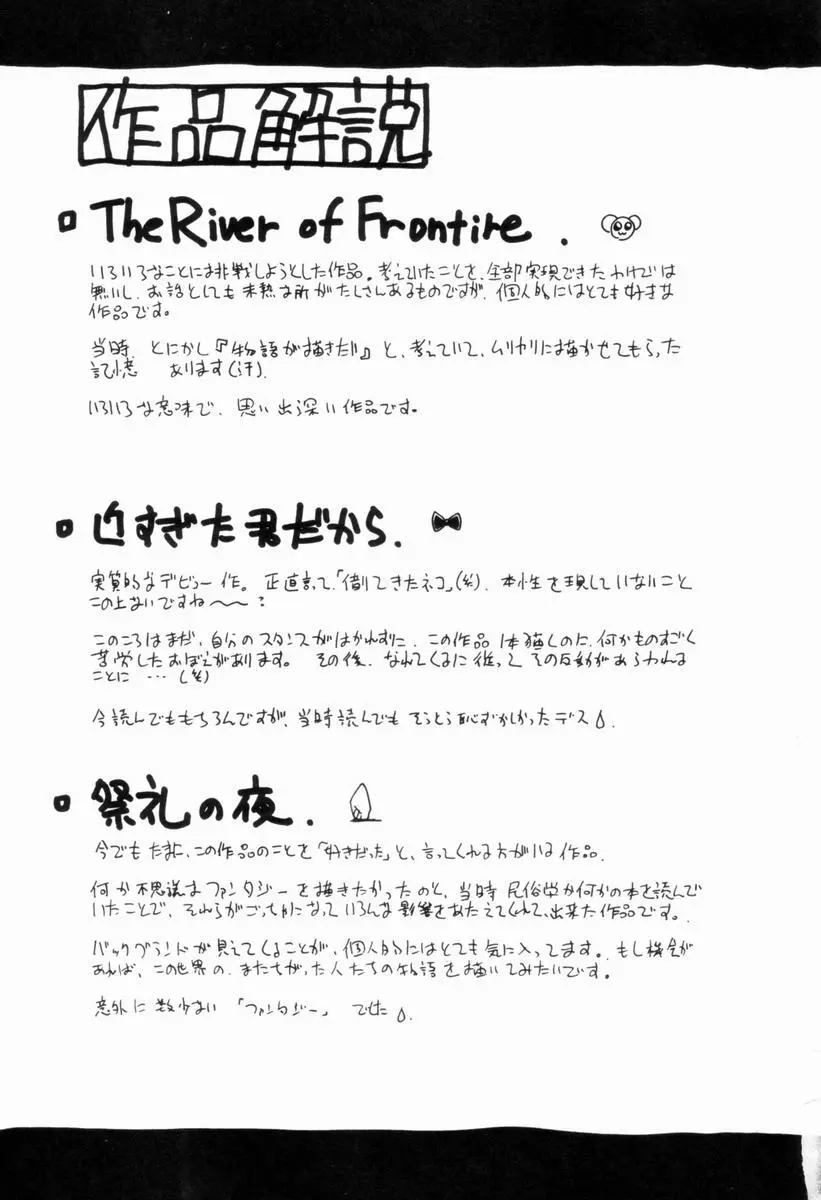 作品解説
The River of Frontire.
いろいろなことに挑戦しようとした作品。考えていたことを、全部実現できたわけでは
無いし、お話としても未熟な所がたくさんあるものですが、個人的にはとても好きな
作品です。
当時、とにかく『物語が描きたい』と、考えていて、ムリヤリに描かせてもらった
記憶 あります(汗).
いろいろな意味で、思い出深い作品です。
近すぎた君だから.
実質的なデビュー作。正直言って、「借りてきたネコ」(笑). 本性を現していないこと
この上ないですね〜〜:
このころはまだ、自分のスタンスがはかれずに、この作品 描くのに、何かものすごく
苦労したおぼえがあります。その後、なれてくるに従って その反動があらわれる
ことに…(笑)
今読んでももちろんですが、当時読んでも そうとう恥ずかしかったデス
祭礼の夜.
今でもたまに、この作品のことを「好きだった」と、言ってくれる方がいる作品.
何か不思議なファンタジーを描きたかったのと、当時 民俗学か何かの本を読んで
いたことで、それらがごっちゃになって いろんな影響をあたえてくれて、出来た作品です。
バックグランドが見えてくることが、個人的にはとても気に入ってます。もし機会が
あれば、この世界の、またちがった人たちの物語を描いてみたいです。
意外に数少ない「ファンタジー」 でした